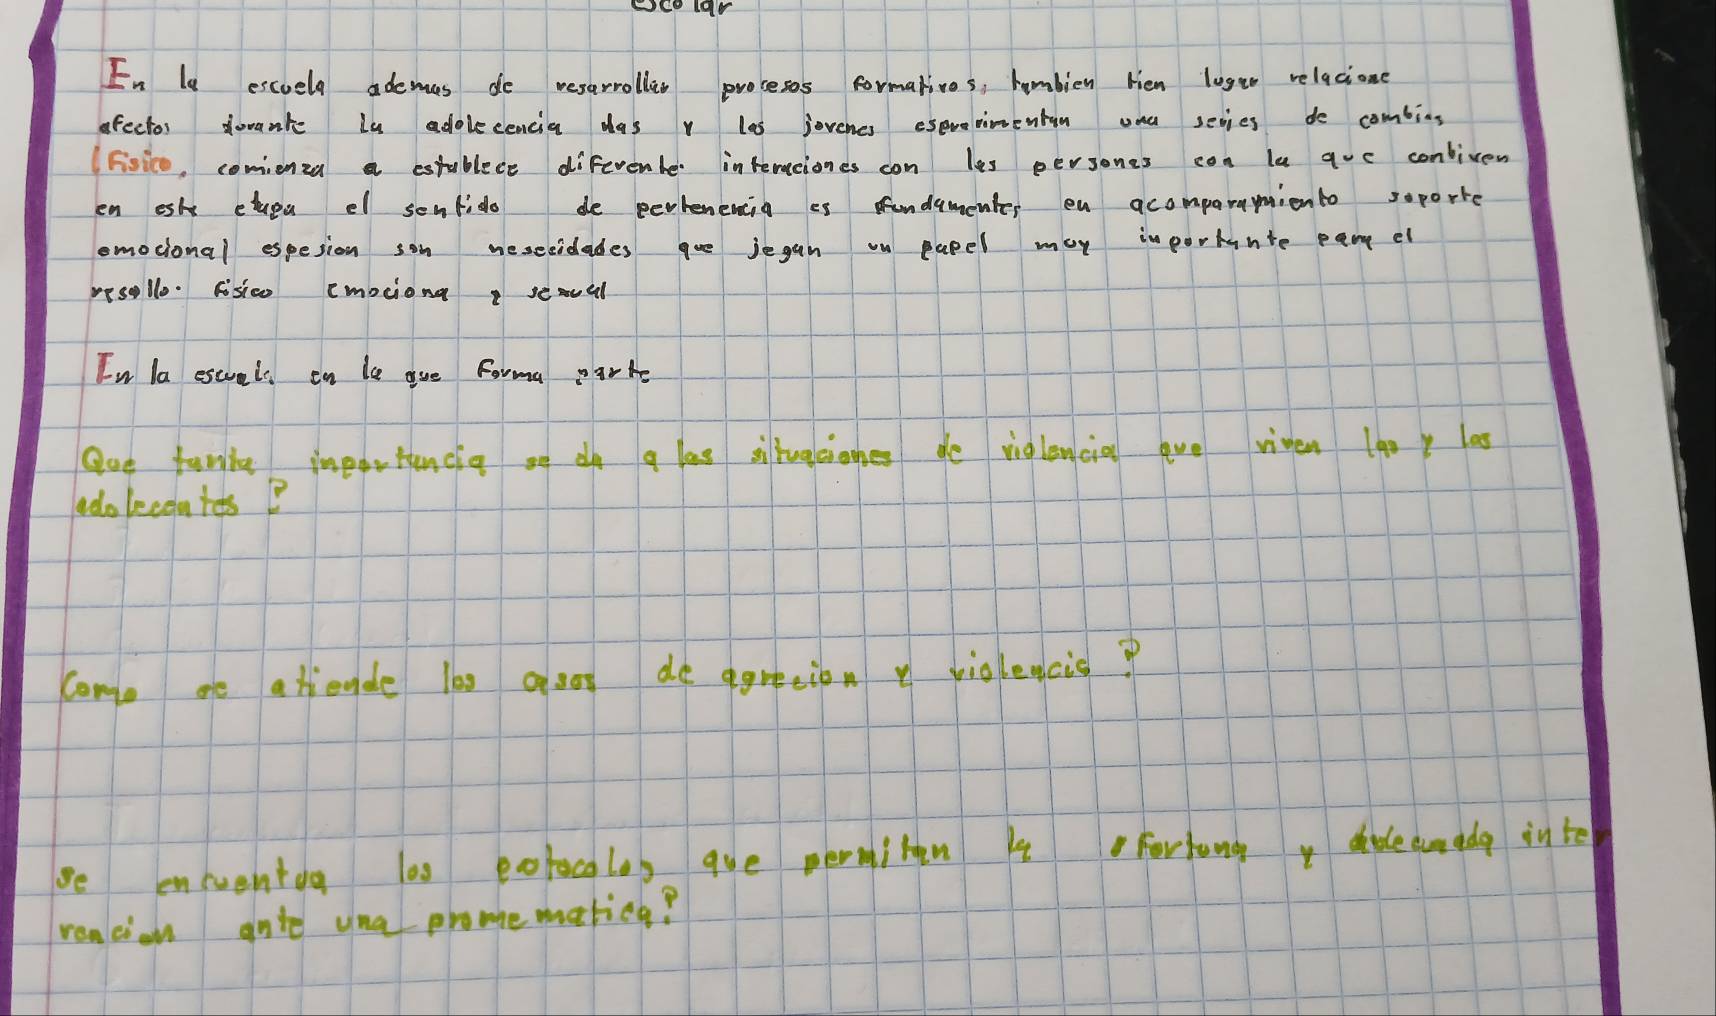 escolar
En la escuela ademas de resarrollar procesos formativos, tambien tien lugar relacione
afectos durante la adolecencia las y los jovenes esperimentan una series de cambios
(Fisico, comienza a establece diferente interaciones con las persones con la que conbiven
en este etapa el sentido de pertenencia es fundamentes en acomparamiento soporte
emocional espesion son nesecidades que jegan un papel moy inportante para el
resollo. fisico emociona y sexual
En la escuela en la que forma parte
Que tanta inportancia se da a las situaciones de violencia que viven las y los
adolecentes?
Como se atiende los casos de agrecion y violencia?
se encuentra los potocolos que permitan la ofortuna y adecuada inter
vencion ante una promematica?